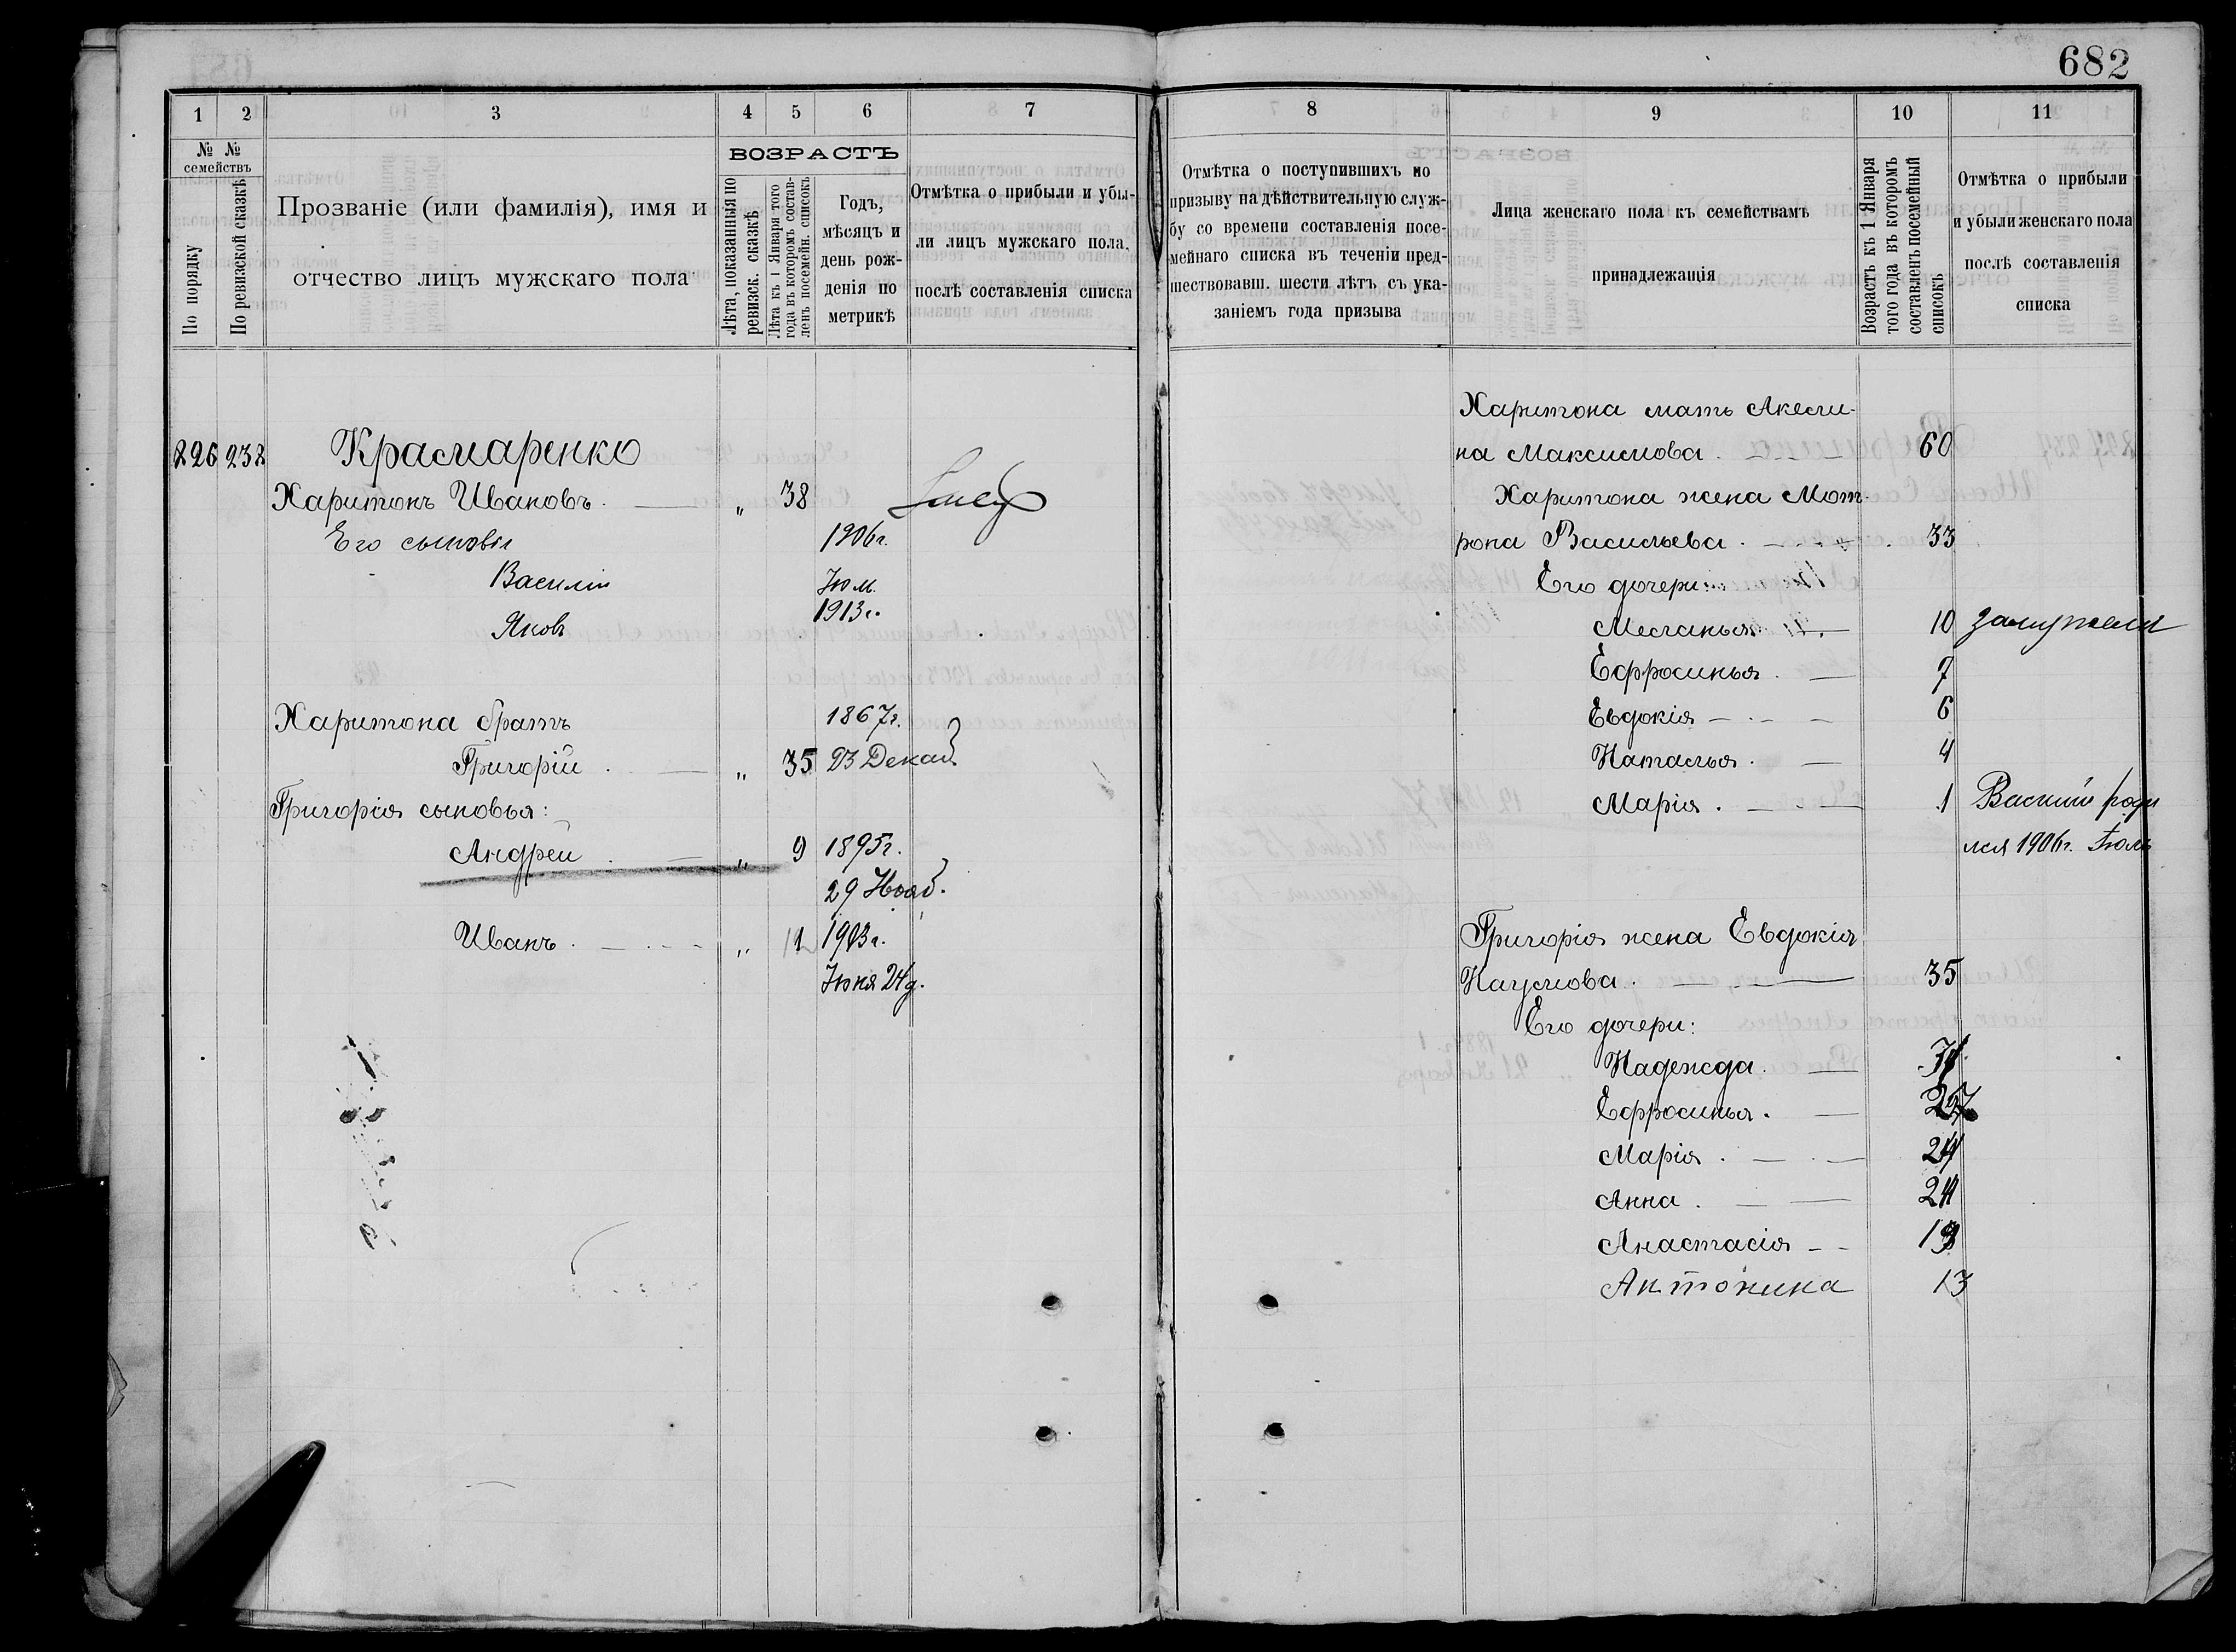 682
1 2 3 4 5 6 7
№ №
семействъ
По порядку
По ревизской сказкѣ
Прозваніе (или фамилія), имя и
отчество лицъ мужскаго пола
ВОЗРАСТЪ
Лѣта, показанныя по
ревизск. сказкѣ
Лѣта къ 1 Января того
года въ которомъ состав-
ленъ посемейн. списокъ
Годъ,
мѣсяцъ и
день рож-
денія по
метрикѣ
Отмѣтка о прибыли и убы-
ли лицъ мужскаго пола,
послѣ составленія списка
226 232 Красмаренко
Харитонъ Ивановъ. „ 38
Его сыновья 1906г.
Василій Июл.
Яковъ 1913г.
Харитона братъ 1867г.
Григорій . „ 35 23 Декаб
Григорія сыновья:
Андрей . „ 9 1895г.
29 Нояб.
Иванъ . „ 1 1903г.
Июня 24д.
8 9 10 11
Отмѣтка о поступившихъ по
призыву на дѣйствительную служ-
бу со времени составленія посе-
мейнаго списка въ теченіи пред-
шествовавш. шести лѣтъ съ ука-
заніемъ года призыва
Лица женскаго пола къ семействамъ
принадлежащія
Возрастъ къ 1 Января
того года въ которомъ
составленъ посемейный
списокъ
Отмѣтка о прибыли
и убыли женскаго пола
послѣ составленія
списка
Харитона мать Акели-
на Максимова . 60
Харитона жена Мот-
рона Васильева . 33
Его дочери:
Меланья 10 замужем
Ефросинья . 7
Евдокія 6
Наталья . 4
Марія . 1 Василій роди
лся 1906г. Июль
Григорія жена Евдокія
Наумова . 35
Его дочери:
Надежда .
Ефросинья .
Марія .
Анна .
Анастасія
Антонина 13